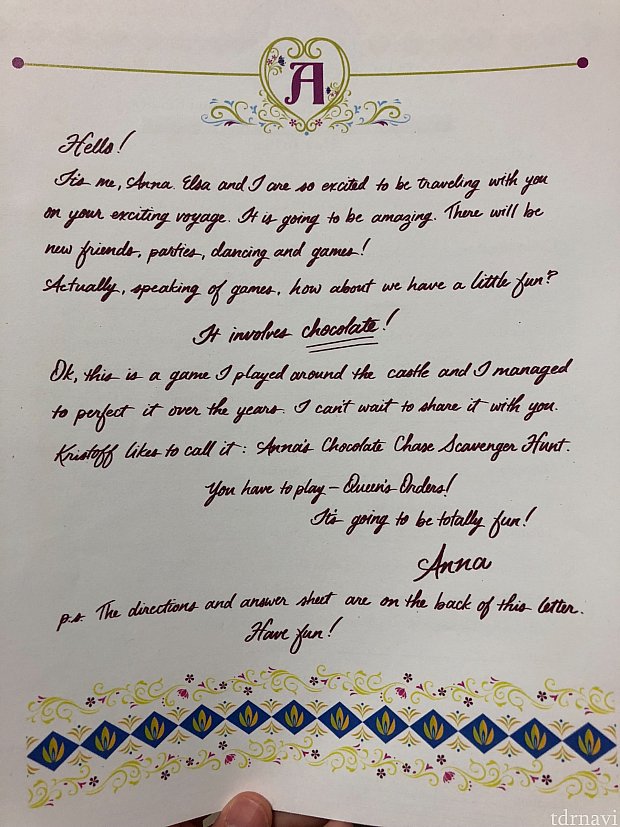 A
Hello!
It's me, Anna. Elsa and I are so excited to be traveling with you
on your exciting voyage. It is going to be amazing. There will be
new friends, parties, dancing and games!
Actually, speaking of games, how about we have a little fun?
It involves chocolate!
Ok, this is a game I played around the castle and I managed
to perfect it over the years. I can't wait to share it with you.
Kristoff likes to call it: Anna's Chocolate Chase Scavenger Hunt.
You have to play - Queen's Orders!
It's going to be totally fun!
Anna
p.s. The directions and answer sheet are on the back of this letter.
Have fun!
tdrnavi